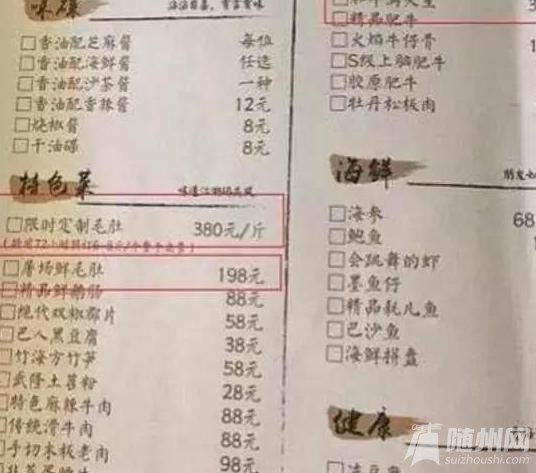 味碟
香油配芝麻酱 每位
香油配海鲜酱 任选
香油配沙茶酱 一种
香油配香辣酱 12元
烧椒酱 8元
干油碟 8元
特色菜
限时定制毛肚 380元/斤
屠场鲜毛肚 198元
精品鲜鹅肠 88元
现代双椒郡片 58元
巴人黑豆腐 38元
竹海方竹笋 58元
武隆土苕粉 28元
特色麻辣牛肉 88元
传统滑牛肉 88元
手切木板老肉 98元
精品肥牛
火焰牛仔骨
S级上脑肥牛
胶原肥牛
牡丹松板肉
海鲜
海参 68
鲍鱼
会跳舞的虾
墨鱼仔
精品耗儿鱼
巴沙鱼
海鲜拼盘
健康
随州网
suizhoushi.com